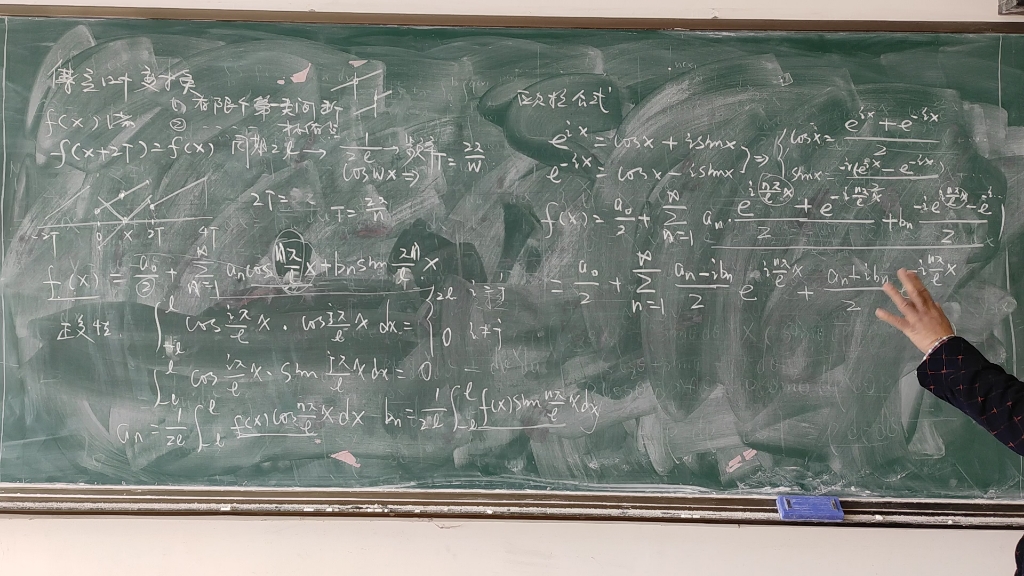 傅立叶变换
① 有限个第一类间断
f(x) ②
f(x+2T)=f(x) 周期 2l → 1/2l T=2π/w
cos wx ⇒
2T= T=2π/n
-2T 0 x 2T 4T
f(x) = a₀/2 + ∑_{n=1}^{∞} aₙcos nπ/l x + bₙ sin x
正交性 ∫_{-l}^{l} cos iπ/l x · cos jπ/l x dx = { 2l i=j
0 i≠j
∫_{-l}^{l} cos iπ/l x · sin jπ/l x dx = 0
aₙ = 1/2l ∫_{-l}^{l} f(x) cos nπ/l x dx bₙ = 1/2l ∫_{-l}^{l} f(x) sin nπ/l x dx
欧拉公式
e^{ix} = cosx + i sinx } ⇒ { cosx = (e^{ix} + e^{-ix})/2
e^{-ix} = cosx - i sinx sinx = -i(e^{ix} - e^{-ix})/2
f(x) = a₀/2 + ∑_{n=1}^{∞} aₙ (e^{i nπ/l x} + e^{-i nπ/l x})/2 + bₙ
= a₀/2 + ∑_{n=1}^{∞} (aₙ - i bₙ)/2 e^{i nπ/l x} + (aₙ + i bₙ)/2